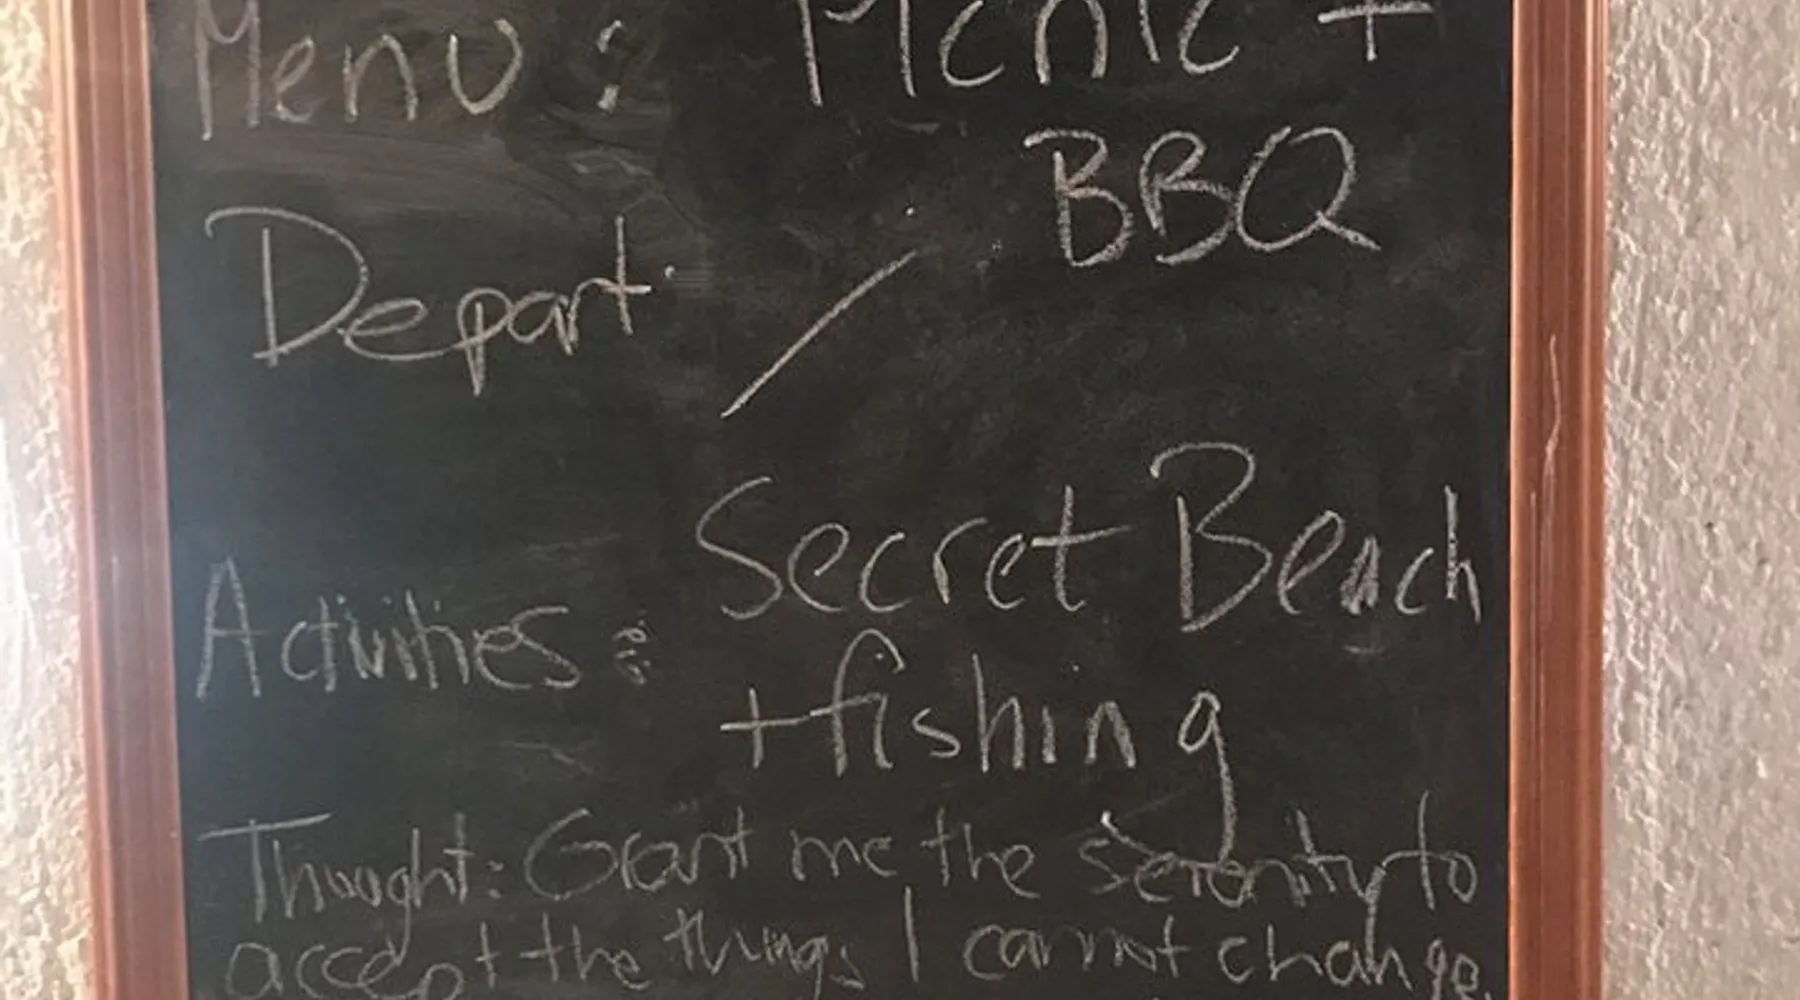 Menu: Picnic +
BBQ
Depart: /
Activities: Secret Beach
+ fishing
Thought: Grant me the serenity to
accept the things I cannot change,